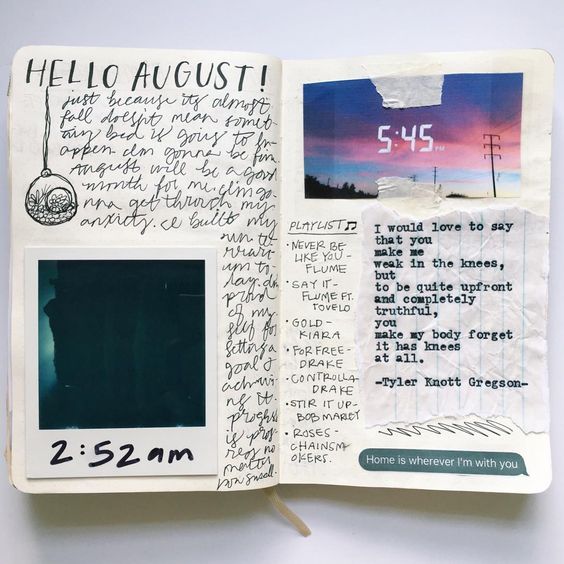 HELLO AUGUST!
just because its almost
fall doesn't mean
bad is going to
appen. Im gonna be fine
August will be a good
month for me. im go
nna get through my
anxiety. I built my
own te
rrari
um to
day. Im
proud
of my
self for
setting a
goal &
achivi
ng it.
progress
is prog
ress no
matter
how small.
2:52am
5:45 PM
PLAYLIST
• NEVER BE
LIKE YOU -
FLUME
• SAY IT -
FLUME FT.
TOVELO
• GOLD -
KIARA
• FOR FREE -
DRAKE
• CONTROLLA
DRAKE
• STIR IT UP -
BOB MARLEY
• ROSES -
CHAINSM
OKERS.
I would love to say
that you
make me
weak in the knees,
but
to be quite upfront
and completely
truthful,
you
make my body forget
it has knees
at all.
-Tyler Knott Gregson-
Home is wherever I'm with you